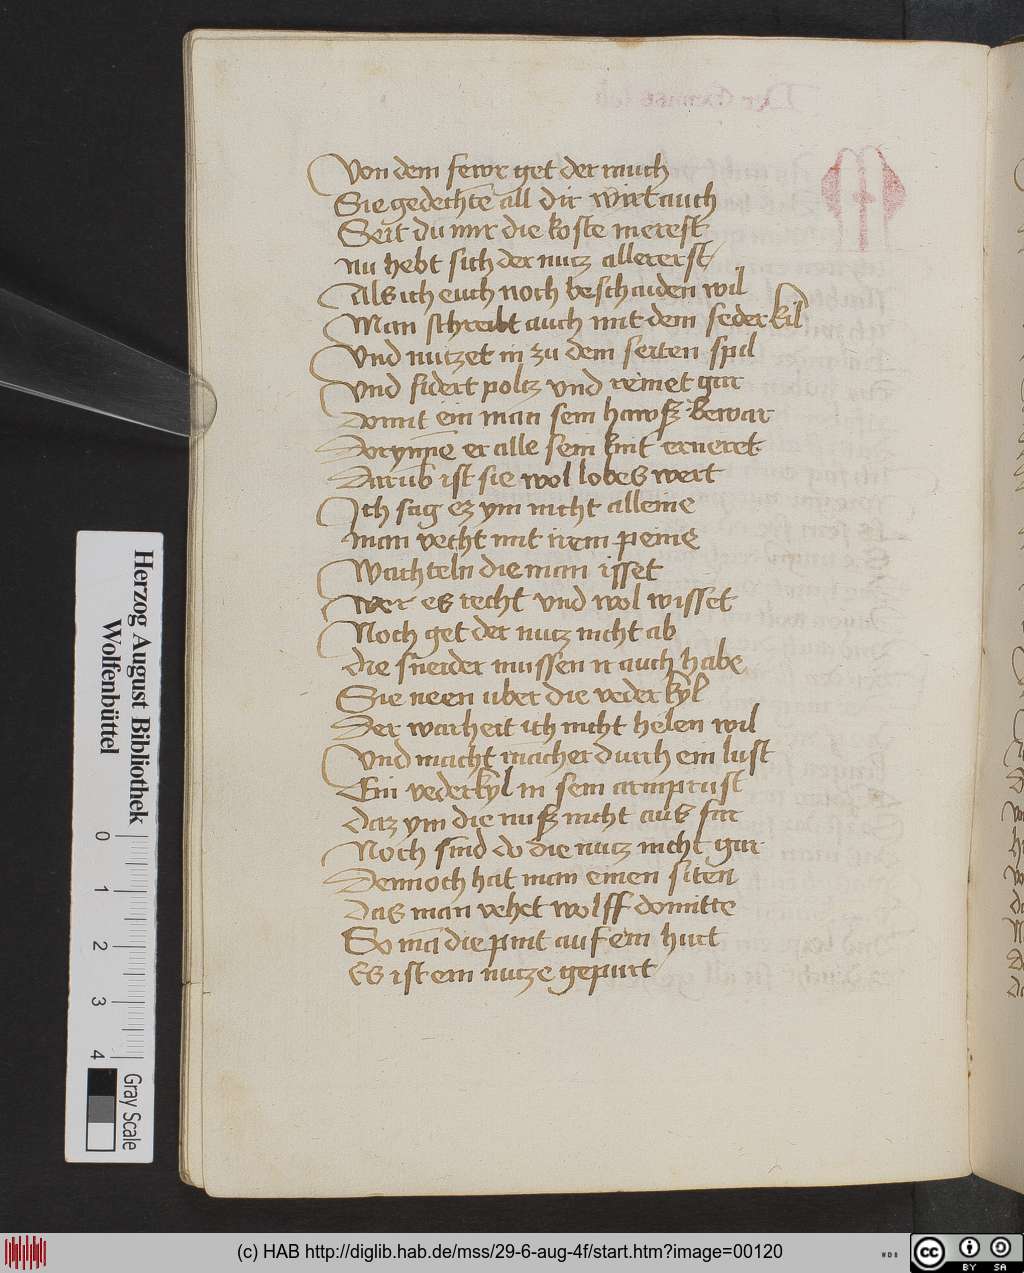 Von dem fewr get der rauch
Sie gedechtē all dir wirt auch
Seit du mir die koste merest
nu hebt sich der nutz allererst
Als ich euch noch beschaiden wil
Man schreibt auch mit dem feder kil
Vnd nutzet in zu dem seiten spil
Vnd fidert poltz vnd reimet gar
Domit ein man sein hawß bewar
Dorynne er alle sein kint erneret
Darūb ist sie wol lobes wert
Ich sag ez ym nicht alleine
man vecht mit irem peine
Wachteln die man isset
Wer es recht vnd wol wisset
Noch get der nutz nicht ab
die sneider mussen ir auch habe
Sie neen uber die veder kyl
Der warheit ich nicht helen wil
Vnd macht mācher durch ein lust
Ein vederkyl in sein armprust
daz ym die nuß nicht aus far
Noch sind do die nutz nicht gar
Dennoch hat man einen siten
Das man vehet wolff domitte
So mā die pint auf ein hurt
Es ist ein nutze gepurt
Herzog August Bibliothek
Wolfenbüttel
0 1 2 3 4
Gray Scale
(c) HAB http://diglib.hab.de/mss/29-6-aug-4f/start.htm?image=00120
WDB
cc BY SA